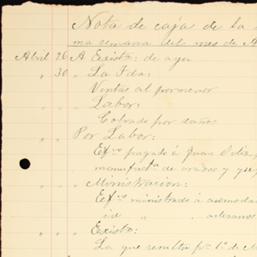 Nota de caja de la
ma semana del mes de M
Abril 26 A Exista: de ayer
" 30 " La Ida:
Ventas al pormenor
" " " Labor:
Cobrado por daños
" " Por Labor:
Efvo pagado á Juan
manufacta de arados y yu
" " " Ministracion:
Efvo ministrado á acomoda
id " " artesanos
" " " Exista:
La que resulta pa 1o de M